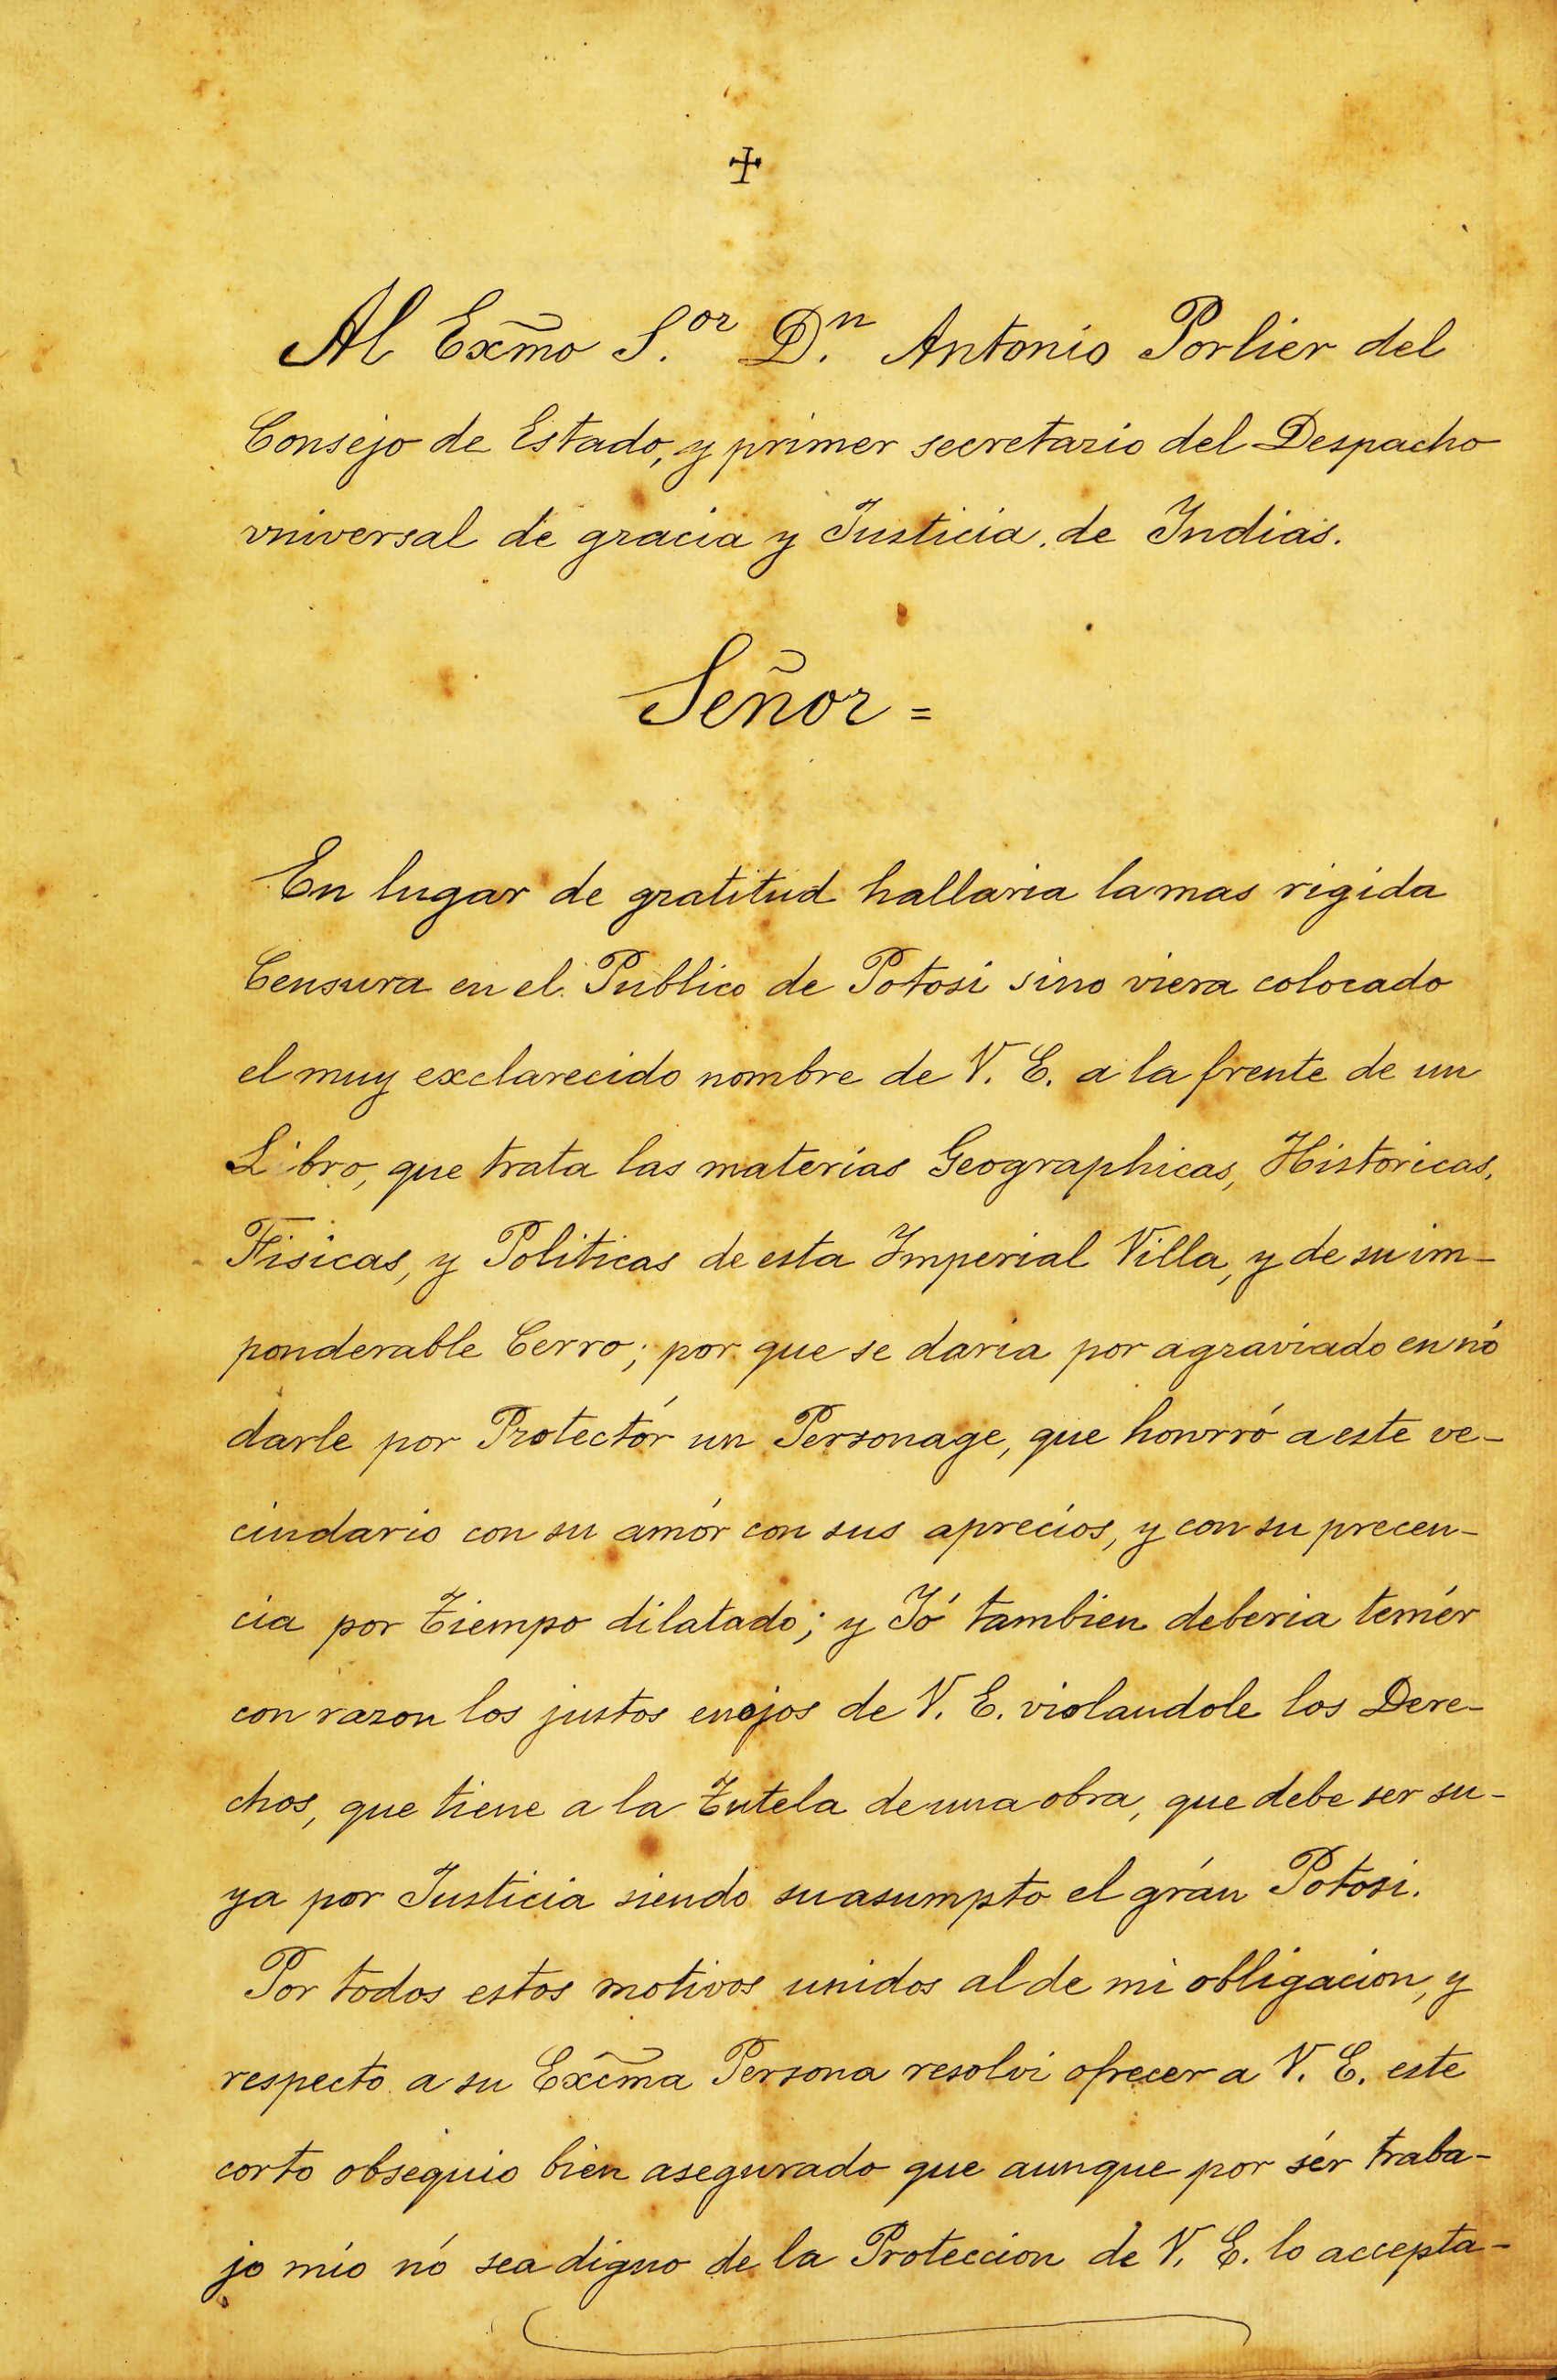 ✠
Al Exm̃o S.or D.n Antonio Porlier del
Consejo de Estado, y primer secretario del Despacho
vniversal de gracia y Justicia de Indias.
Señor =
En lugar de gratitud hallaria la mas rigida
Censura en el Publico de Potosi sino viera colocado
el muy exclarecido nombre de V. E. a la frente de un
Libro, que trata las materias Geographicas, Historicas,
Fisicas, y Politicas de esta Imperial Villa, y de su im-
ponderable Cerro; por que se daria por agraviado en nó
darle por Protectór un Personage, que honrró a este ve-
cindario con su amór con sus aprecios, y con su precen-
cia por Tiempo dilatado; y Jó tambien deberia temér
con razon los justos enojos de V. E. violandole los Dere-
chos, que tiene a la Tutela de una obra, que debe ser su-
ya por Justicia siendo su asumpto el grán Potosi.
Por todos estos motivos unidos al de mi obligacion, y
respecto a su Excm̃a Persona resolvi ofrecer a V. E. este
corto obsequio bien asegurado que aunque por sér traba-
jo mio nó sea digno de la Proteccion de V. E. lo accepta-